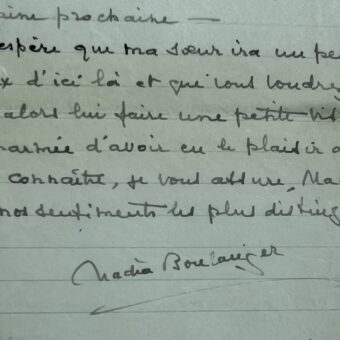 aine prochaine —
espère que ma sœur ira un peu
x d'ici là et que vous voudrez
alors lui faire une petite vis
harmée d'avoir eu le plaisir d
connaître, je vous assure, Ma
nos sentiments les plus disting
Nadia Boulanger